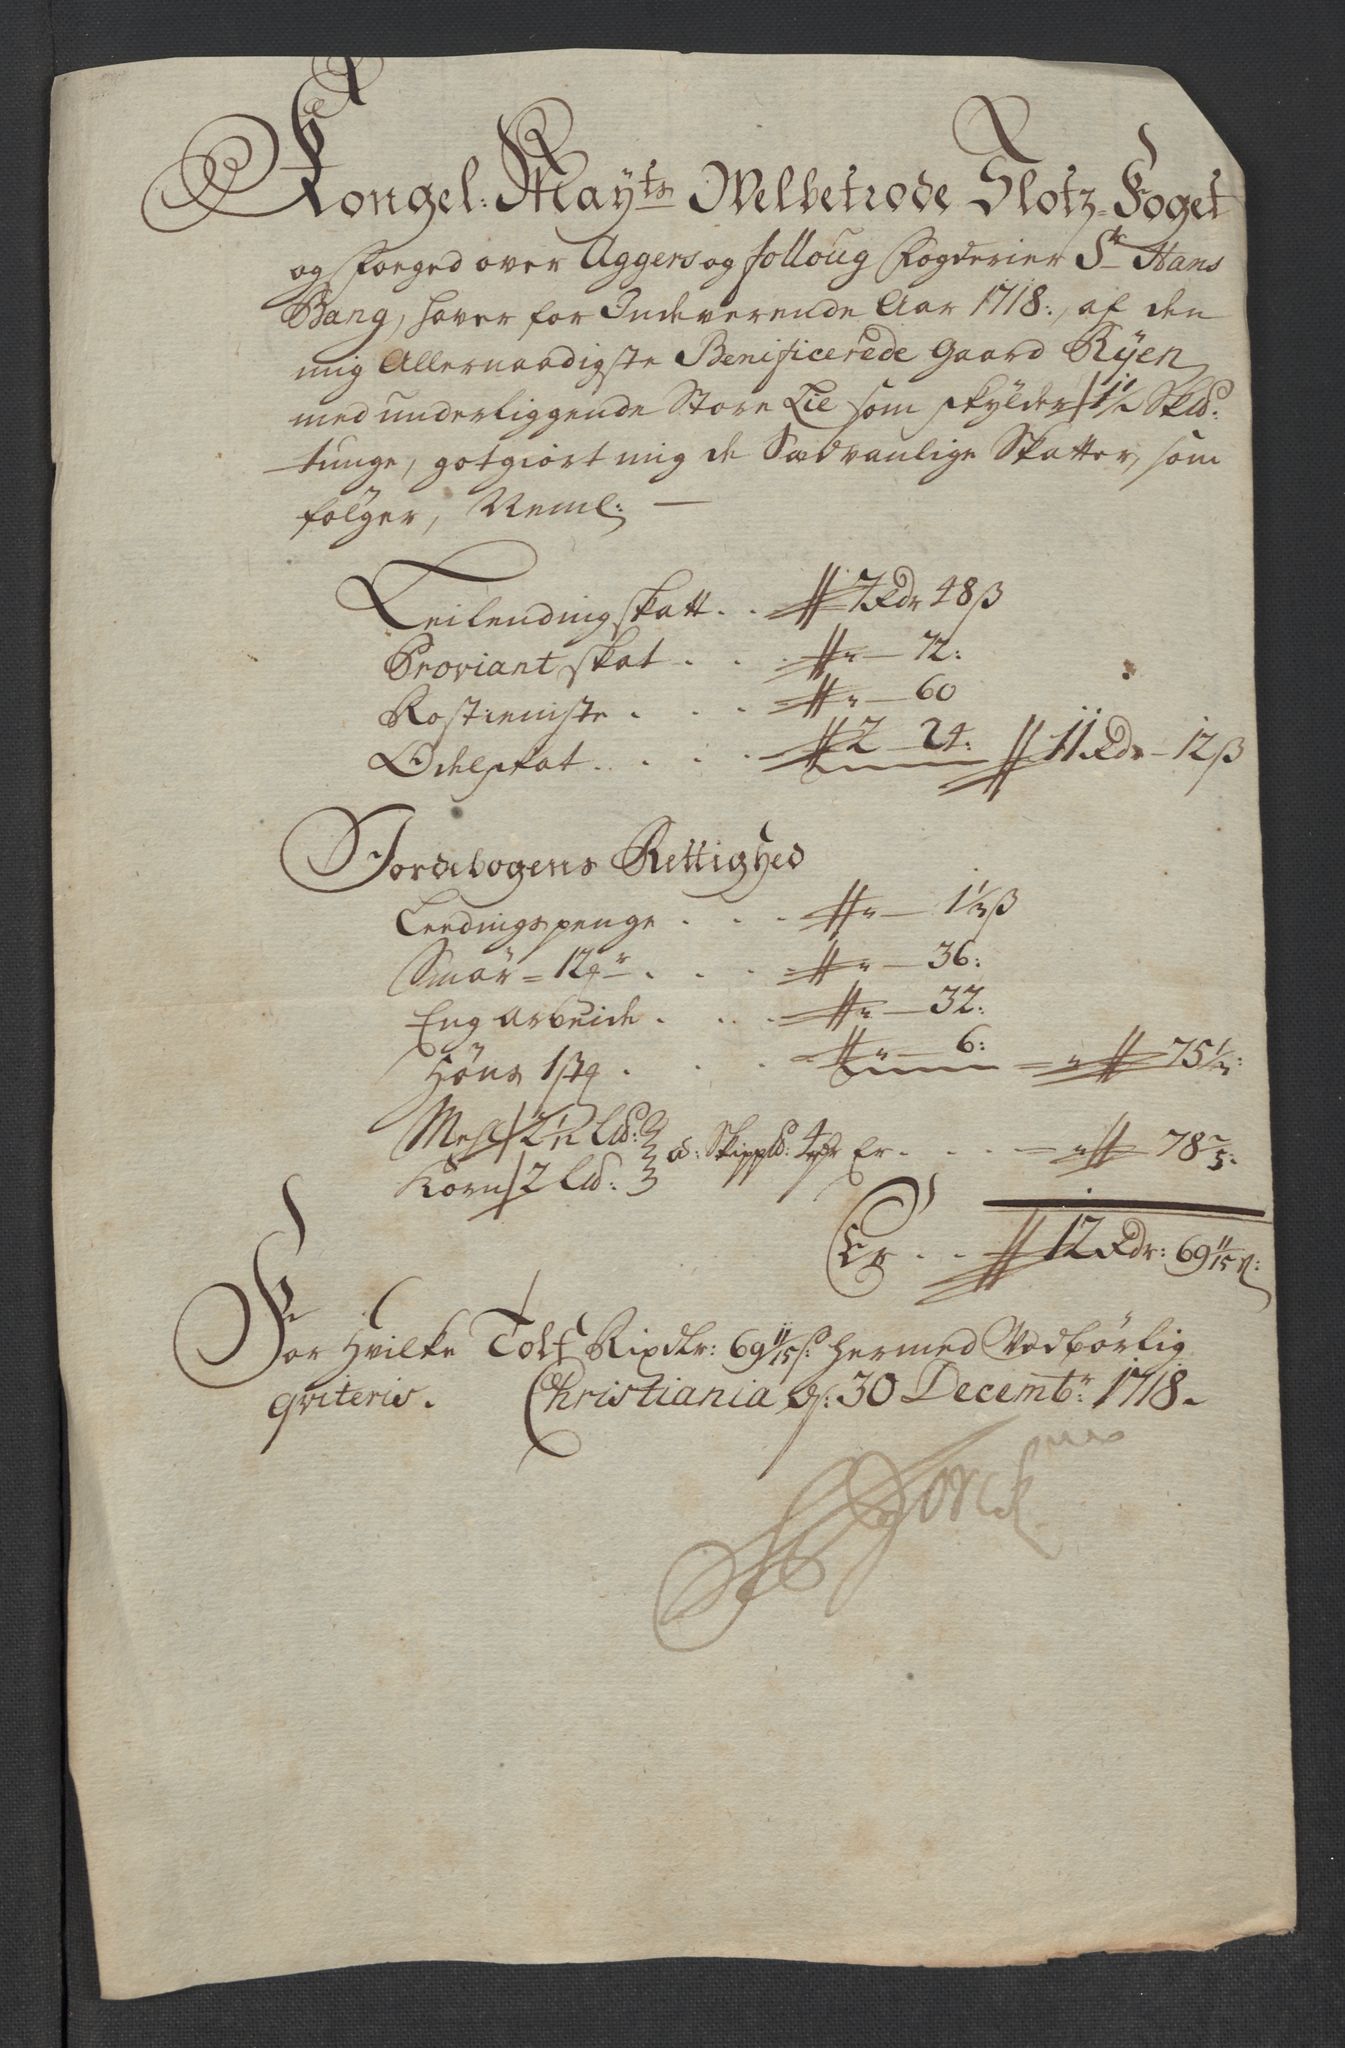 Kongel: Mayts Velbetrode Slotz=Foget
og Foeged over Aggers og folloug Fogderier Sr Hans
Bang, haver for Indeverende Aar 1718:, af den
mig Allernaadigste Benificerede Gaard Ryen
med underliggende Store Lie som skylder 1½ Sk℔:
tunge, gotgiort mig de Sædvanlige Skatter, som
følger, Neml: —
Leilending skatt . . 7 Rdr 48 ß
Proviant skat . . . „ — 72:
Rostieniste . . . „ — 60
Odelskat . . . . 2 — 24: 11 Rdr — 12 ß
Jordebogens Rettighed
Leedingspenge . . . „ — 1⅓ ß
Smør = 12 . . . „ — 36:
Eng Arbeide . . . . „ — 32:
Høns 1 . . . „ — 6: = „ 75⅓:
Meel 2½ L℔:
Korn 2 L℔: a: Skipp℔: Er . . . . — „ 78 2/5:
Er . . . 12 Rdr: 69 11/15 ß:
For Hvilke Tolf Rixdlr: 69 11/15 ß: hermed Vedbørlig
qviteris. Christiania d: 30 Decembr: 1718.